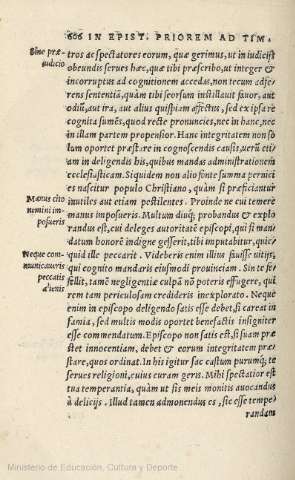 606 IN EPIST. PRIOREM AD TIM.
Sine præ-
iudicio
tros ac spectatores eorum, quæ gerimus, ut in iudicijs
obeundis serues hæc, quæ tibi præscribo, ut integer &
incorruptus ad cognitionem accedas, non tecum adfe-
rens sententiã, quàm tibi seorsum instillauit fauor, aut
odiũ, aut ira, aut alius quispiam affectus, sed ex ipsa re
cognita sumẽs, quod rectè pronuncies, nec in hanc, nec
in illam partem propensior. Hanc integritatem non so
lum oportet præstare in cognoscendis causis, uerũ eti-
am in deligendis his, quibus mandas administrationem
ecclesiasticam. Siquidem non alio fonte summa pernici
es nascitur populo Christiano, quàm si præficiantur
Manus cito
nemini im-
posueris
inutiles aut etiam pestilentes. Proinde ne cui temere
manus imposueris. Multum diuq; probandus & explo
randus est, cui deleges autoritatẽ episcopi, qui si man
datum honorẽ indigne gesserit, tibi imputabitur, quic-
quid ille peccarit. Videberis enim illius fauisse uitijs,
Neque com-
municaueris
peccatis
alienis
qui cognito mandaris eiusmodi prouinciam. Sin te fe-
fellit, tamẽ negligentiæ culpã nõ poteris effugere, qui
rem tam periculosam credideris inexplorato. Neque
enim in episcopo deligendo satis esse debet, si careat in
famia, sed multis modis oportet benefactis insigniter
esse commendatum. Episcopo non satis est, si suam præ
stet innocentiam, debet & eorum integritatem præ-
stare, quos ordinat. In his igitur fac castum purumq; te
serues religioni, cuius curam geris. Mihi spectatior est
tua temperantia, quàm ut sis meis monitis auocandus
à delicijs. Illud tamen admonendus es, sic esse tempe-
randam
Ministerio de Educación, Cultura y Deporte